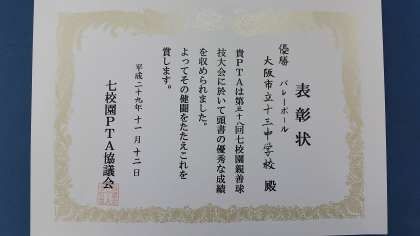 表彰状
優勝 バレーボール
大阪市立十三中学校 殿
貴PTAは第五十八回七校園親善球
技大会に於いて頭書の優秀な成績
を収められました。
よってその健闘をたたえこれを
賞します。
平成二十九年十一月十二日
七校園PTA協議会